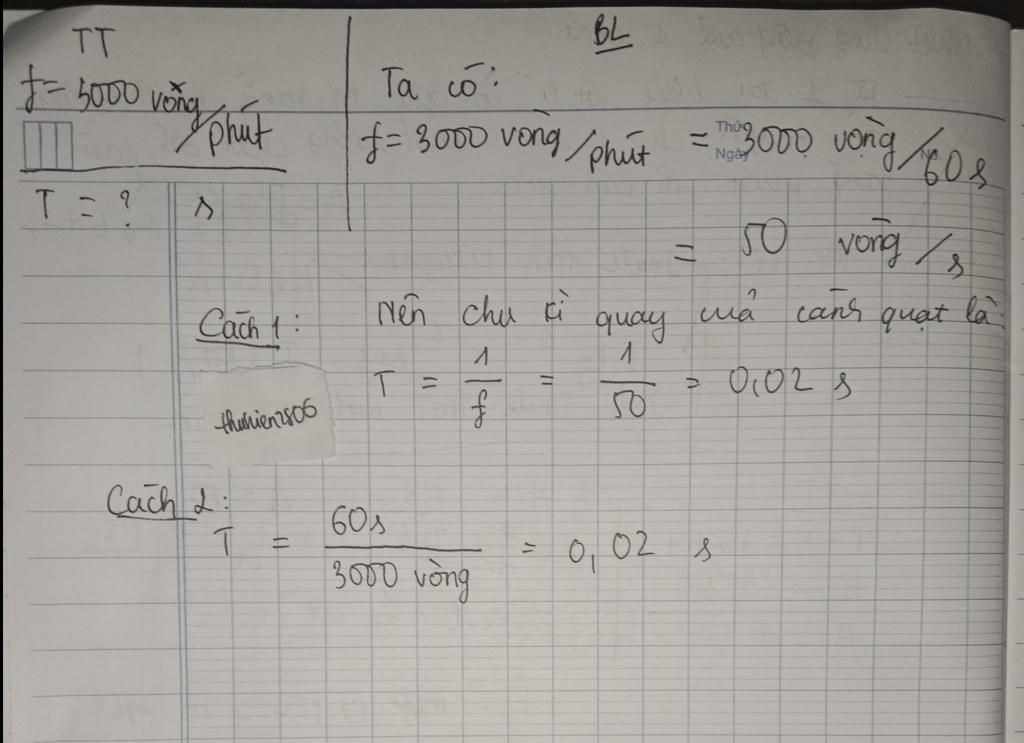 TT
f = 3000 vòng/phút
T = ? s
BL
Ta có:
f = 3000 vòng/phút = 3000 vòng/60s
Thứ
Ngày
No.
= 50 vòng/s
Cách 1: Nên chu kì quay của cánh quạt là
T = 1/f = 1/50 = 0,02 s
thuhien2806
Cách 2:
T = 60s/3000 vòng = 0,02 s